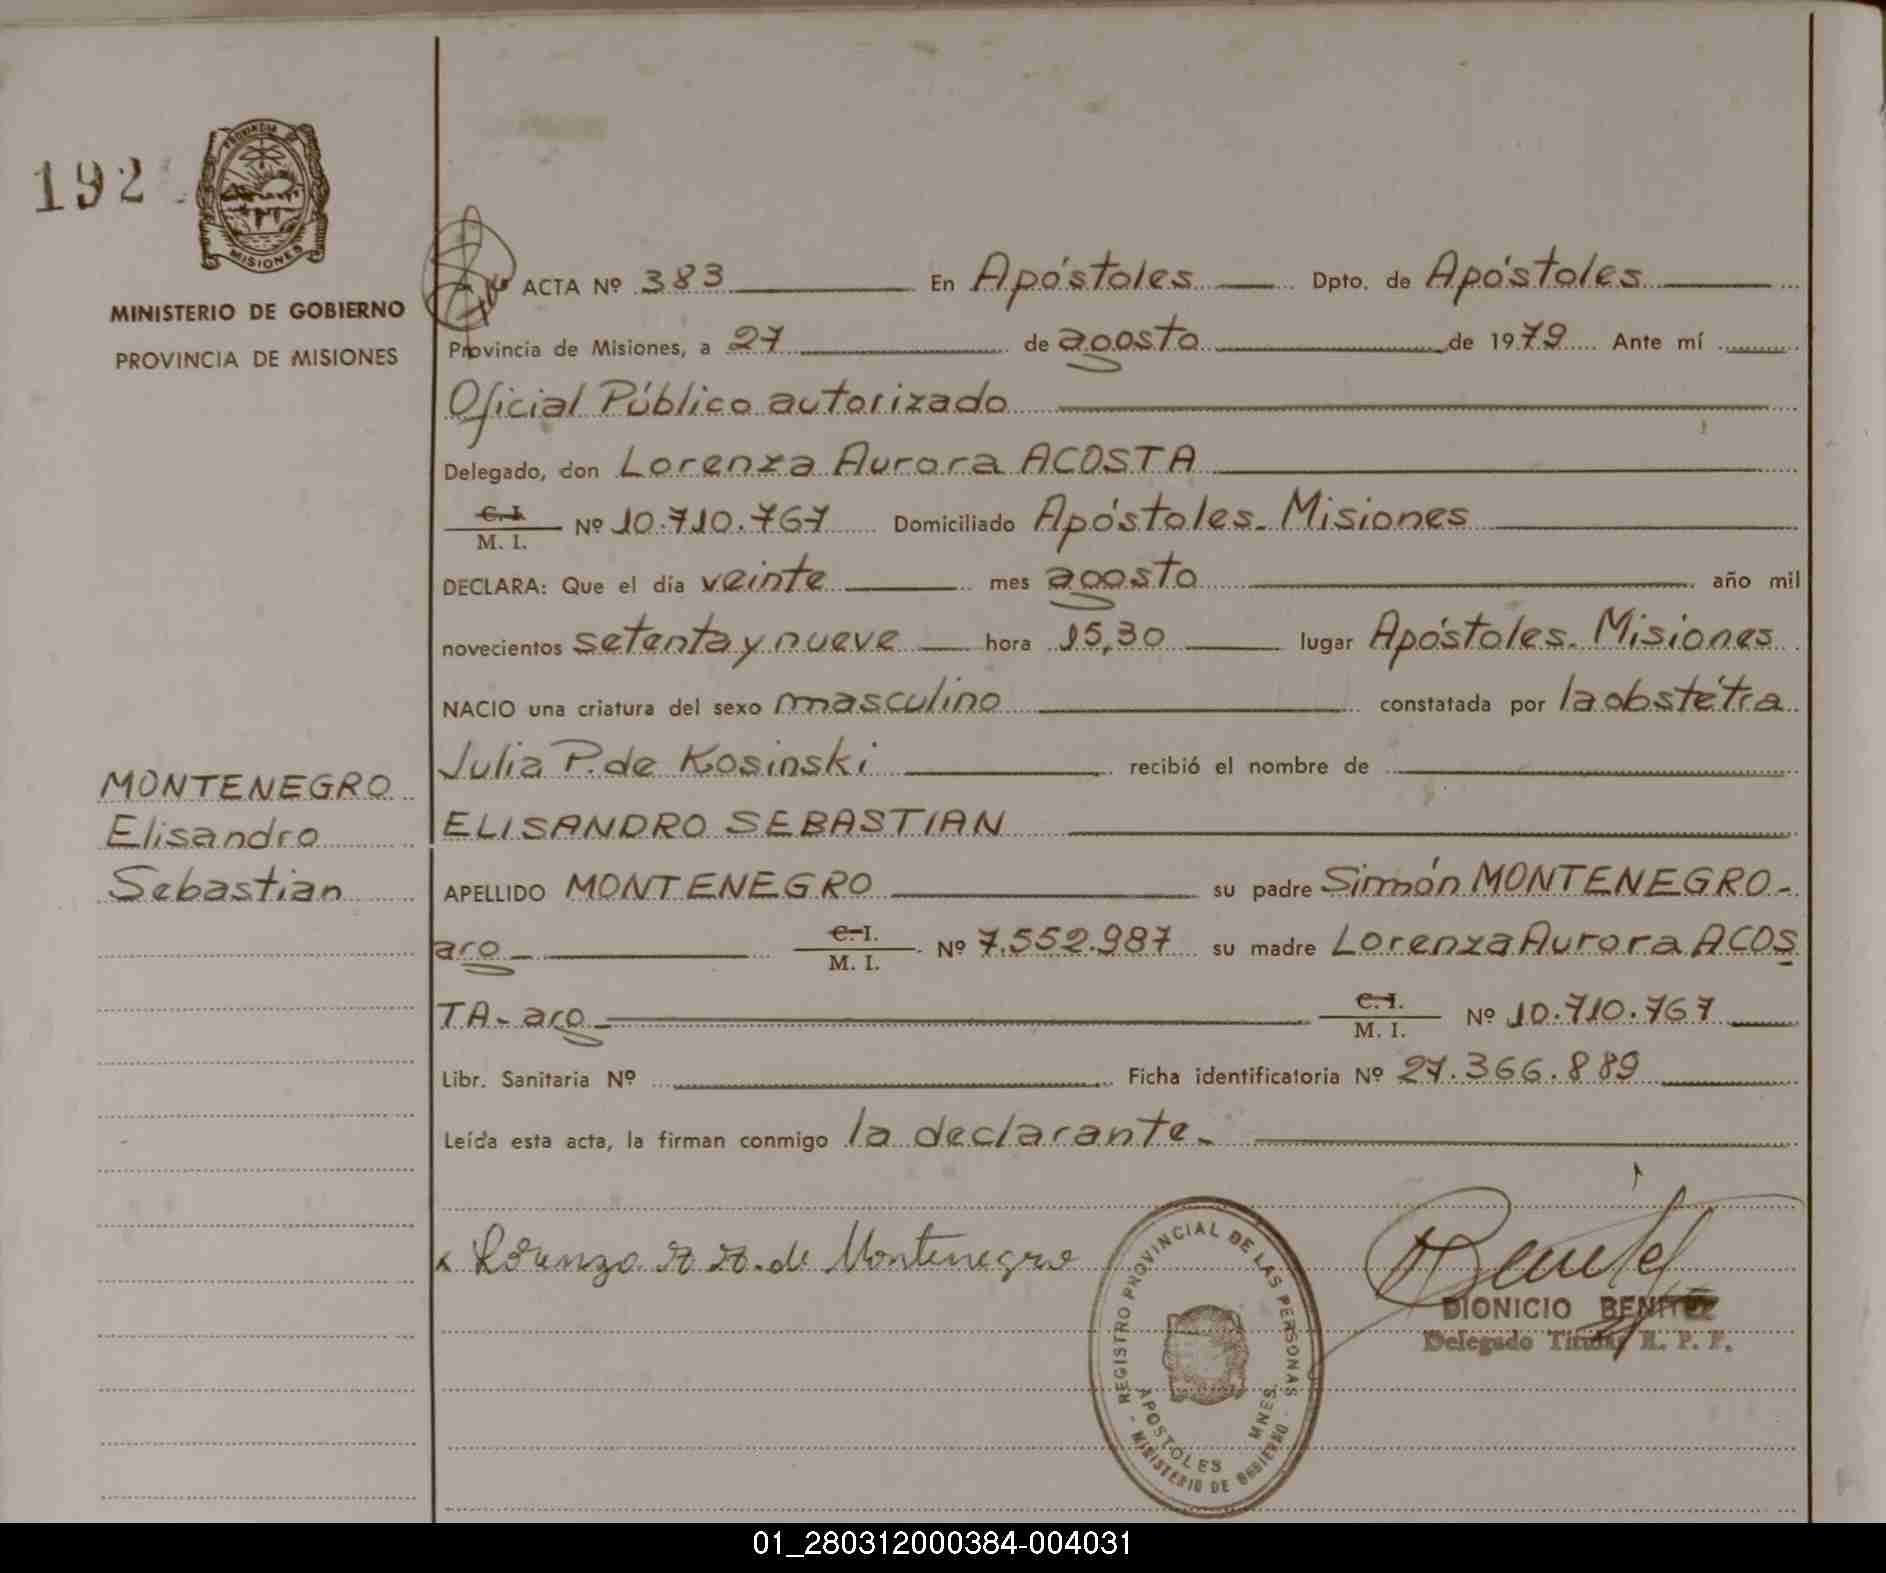 192
PROVINCIA DE
MISIONES
MINISTERIO DE GOBIERNO
PROVINCIA DE MISIONES
ACTA Nº 383 En Apóstoles Dpto. de Apóstoles
Provincia de Misiones, a 27 de agosto de 1979 Ante mí
Oficial Público autorizado
Delegado, don Lorenza Aurora ACOSTA
C. I.
M. I. Nº 10.710.767 Domiciliado Apóstoles. Misiones
DECLARA: Que el día veinte mes agosto año mil
novecientos setenta y nueve hora 15,30 lugar Apóstoles. Misiones
NACIO una criatura del sexo masculino constatada por la obstétra
Julia P. de Kosinski recibió el nombre de
ELISANDRO SEBASTIAN
APELLIDO MONTENEGRO su padre Simón MONTENEGRO-
aro C. I.
M. I. Nº 7.552.987 su madre Lorenza Aurora ACOS
TA- aro C. I.
M. I. Nº 10.710.767
Libr. Sanitaria Nº Ficha identificatoria Nº 27.366.889
Leída esta acta, la firman conmigo la declarante.
MONTENEGRO
Elisandro
Sebastian
x Lorenza A. A. de Montenegro
REGISTRO PROVINCIAL DE LAS PERSONAS
APOSTOLES MNES.
- MINISTERIO DE GOBIERNO -
Benitez
DIONICIO BENITEZ
Delegado Titular R. P. P.
01_280312000384-004031